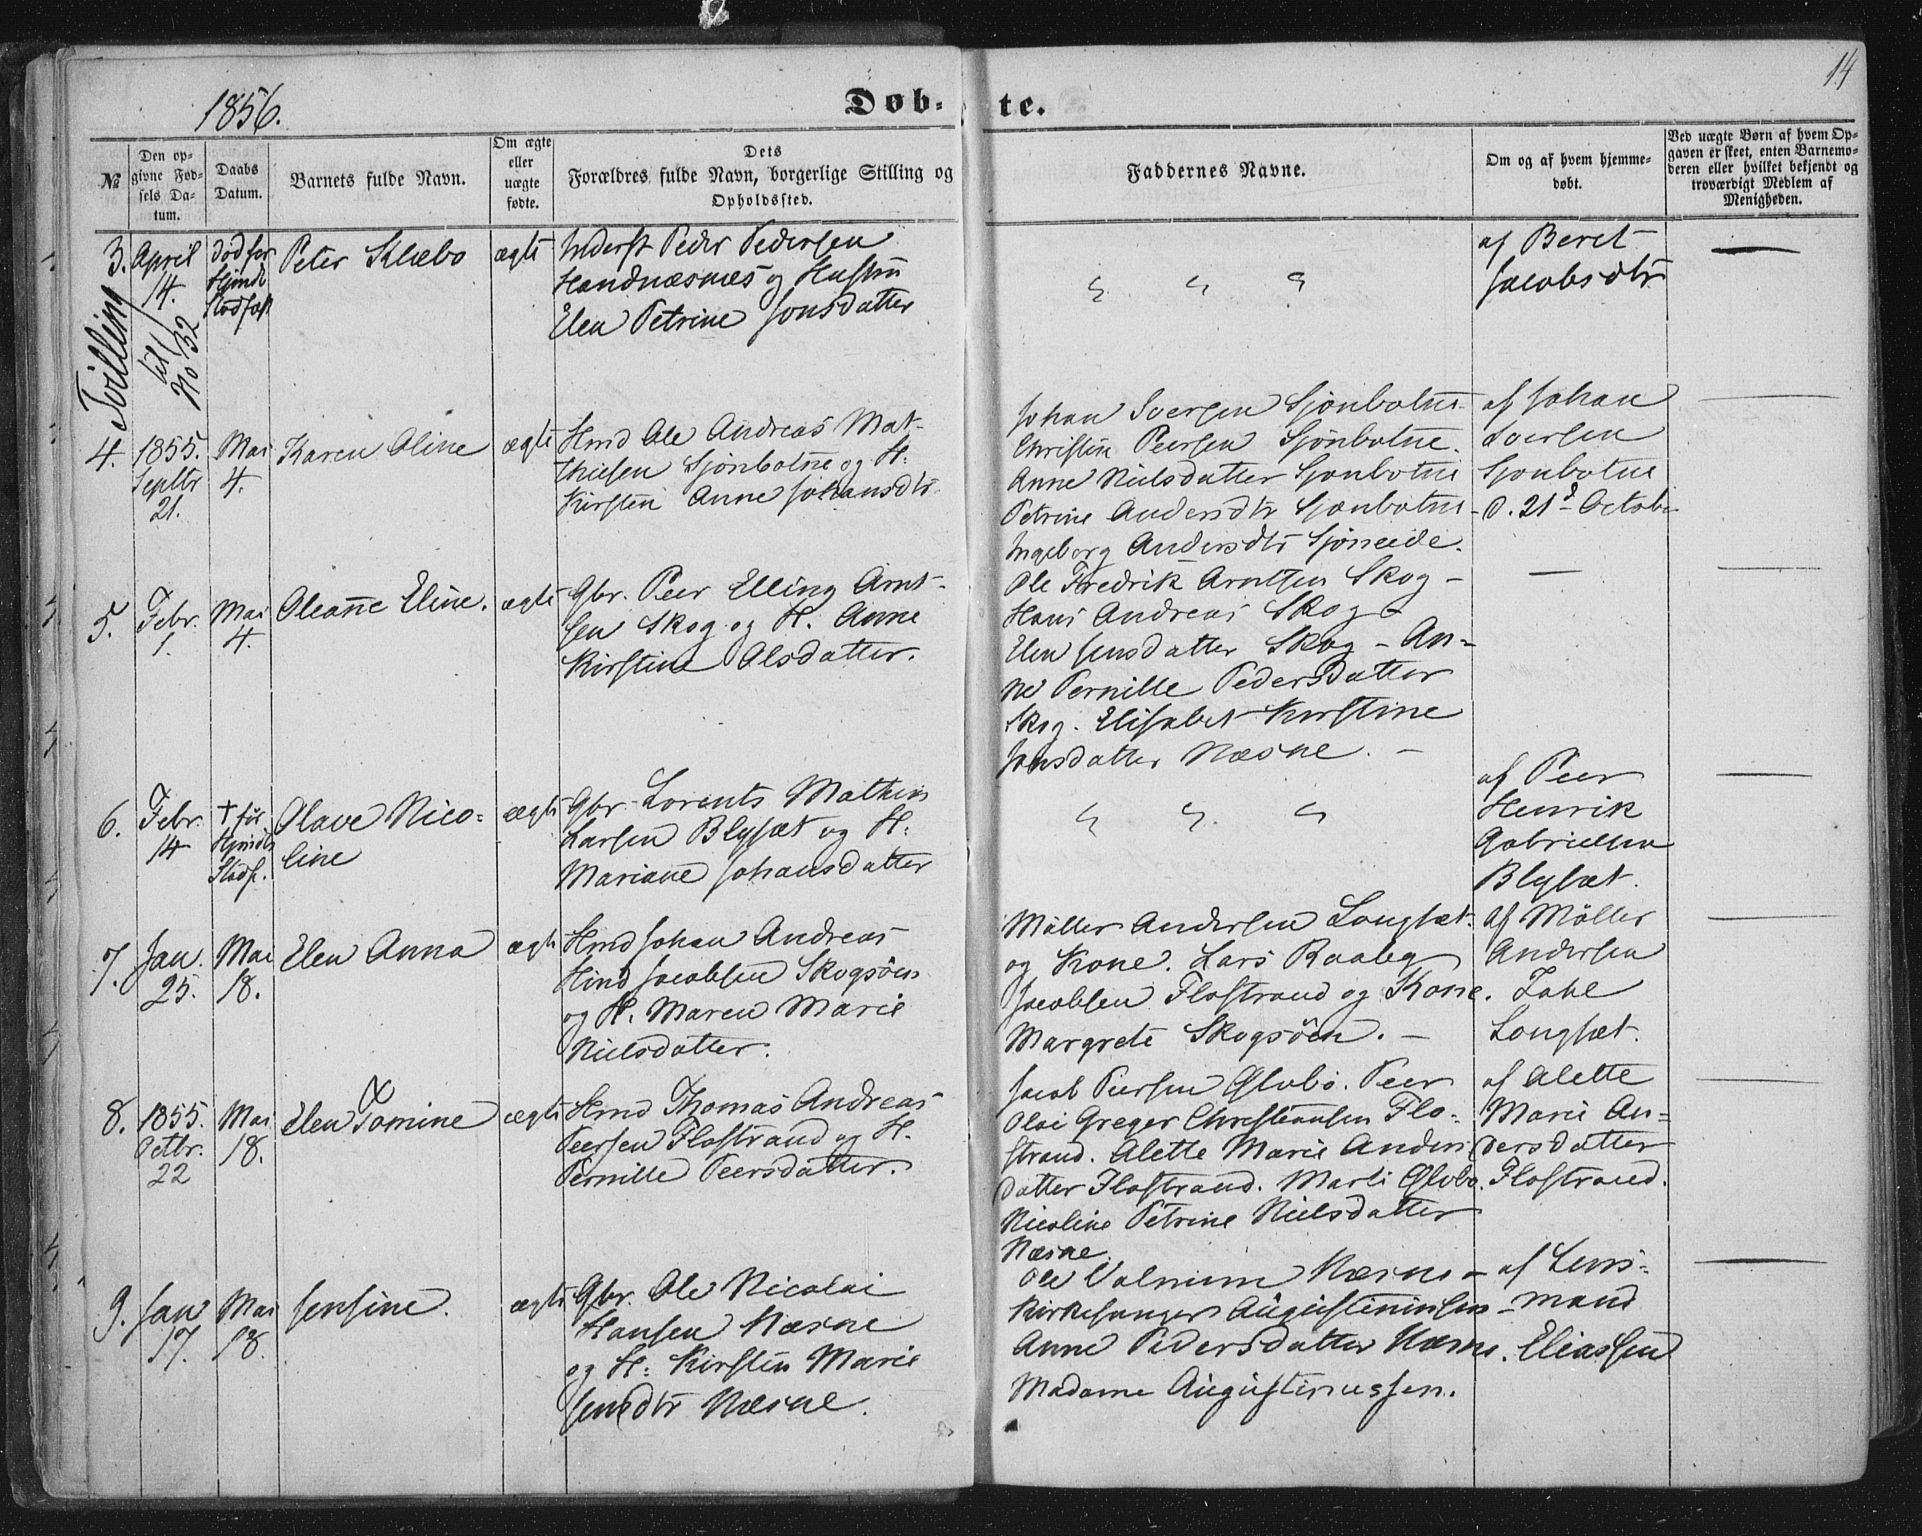 1856.
Døb-
te.
14
№
Den op-
givne Fød-
sels Da-
tum.
Daabs
Datum.
Barnets fulde Navn.
Om ægte
eller
uægte
fødte.
Dets
Forældres fulde Navn, borgerlige Stilling og
Opholdssted.
Faddernes Navne.
Om og af hvem hjemme-
døbt.
Ved uægte Børn af hvem Op-
gaven er skeet, enten Barnemo-
deren eller hvilket bekjendt og
troværdigt Medlem af
Menigheden.
3.
April
14.
Tvilling
til
No 32
død før
Hjmdb
Stadfæst
Peter Klæbo
ægte
Inderst Peder Pedersen
Handnæsnæs og Hustru
Elen Petrine Jonsdatter
" " "
af Beret
Jacobsdtr
—
4.
1855.
Septbr
21.
Mai
4.
Karen Oline
ægte
Hmd Ole Andreas Mat-
thiesen Sjönbotne og H.
Kirsten Anne Johansdtr
Johan Iversen Sjönbotne
Christin Peersen Sjönbotne.
Anne Nielsdatter Sjonbotne
Petrine Andersdtr Sjonbotne
Ingeborg Andersdtr Sjöneide.
af Johan
Iversen
Sjonbotne
d. 21d October
—
5.
Febr.
1.
Mai
4.
Oleanne Eline.
ægte
Gbr. Peer Elling Arnt-
sen Skog og H. Anne
Kirstine Olsdatter.
Ole Fredrik Arntsen Skog —
Hans Andreas Skog —
Elen Jensdatter Skog — An-
ne Pernille Pedersdatter
Skog. Elisabet Kirstine
Jonsdatter Næsne. —
—
—
6.
Febr.
14
† før
Hjmdbs
Stadf.
Olave Nico-
line
ægte
Gbr. Lorents Mathias
Larsen Blysæt og H.
Mariane Johansdatter
" " "
af Peer
Henrik
Gabrielsen
Blysæt.
—
7.
Jan.
25.
Mai
18.
Elen Anna
ægte
Hmd Johan Andreas
Hind Jacobsen Skogsöen
og H. Maren Marie
Nielsdatter.
Möller Andersen Langsæt
og Kone. Lars Raaby
Jacobsen Flostrand og Kone.
Margrete Skogsöen. —
af Möller
Andersen
Zahl
Langsæt.
—
8.
1855.
Octbr.
22
Mai
18.
Elen Tomine
ægte
Hmd Thomas Andreas
Peersen Flostrand og H.
Pernille Peersdatter.
Jacob Peersen Glubo. Peer
Olai Greger Christiansen Flo-
strand. Alette Marie Anders
datter Flostrand. Marli Glubo.
Nicoline Petrine Nielsdatter
Næsne.
af Alette
Marie An-
dersdatter
Flostrand.
—
9.
Jan
17.
Mai
18.
Jensine.
ægte
Gbr. Ole Nicolai
Hansen Næsne
og H: Kirsten Marie
Jensdtr Næsne.
Ole Volnum Næsne —
Kirkesanger Augustinussen —
Anne Pedersdatter Næsne.
Madame Augustinussen.
af Lens-
mand
Eliassen
—